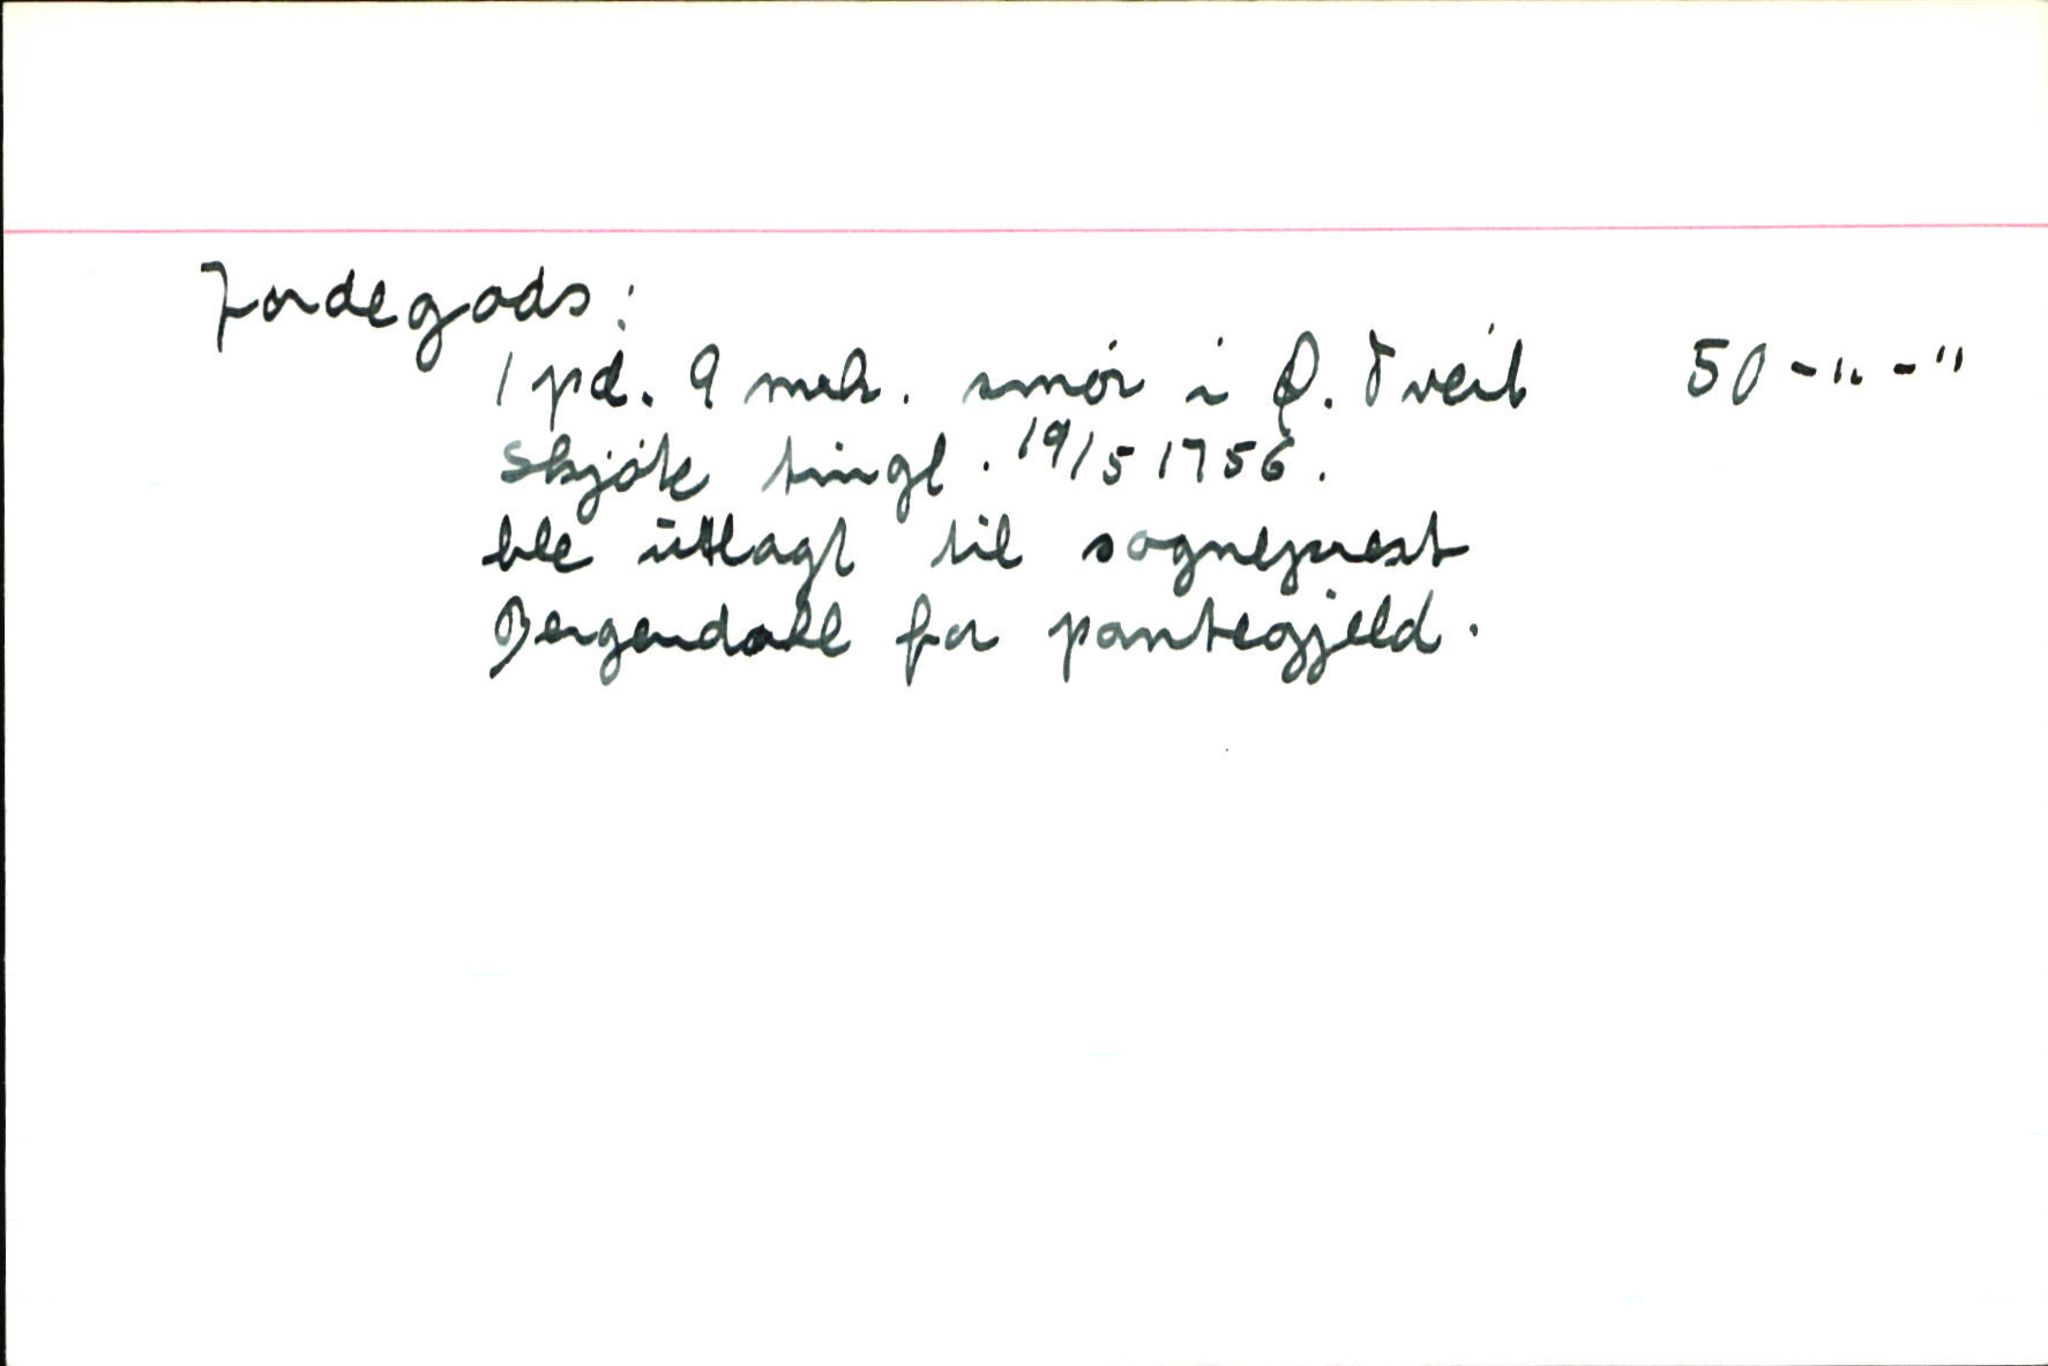 Jordegods:
1 pd. 9 mrk. smör i Ø. Tveit 50-"-"
skjöte tingl. 19/5 1756.
ble utlagt til sogneprest
Bergendahl for pantegjeld.